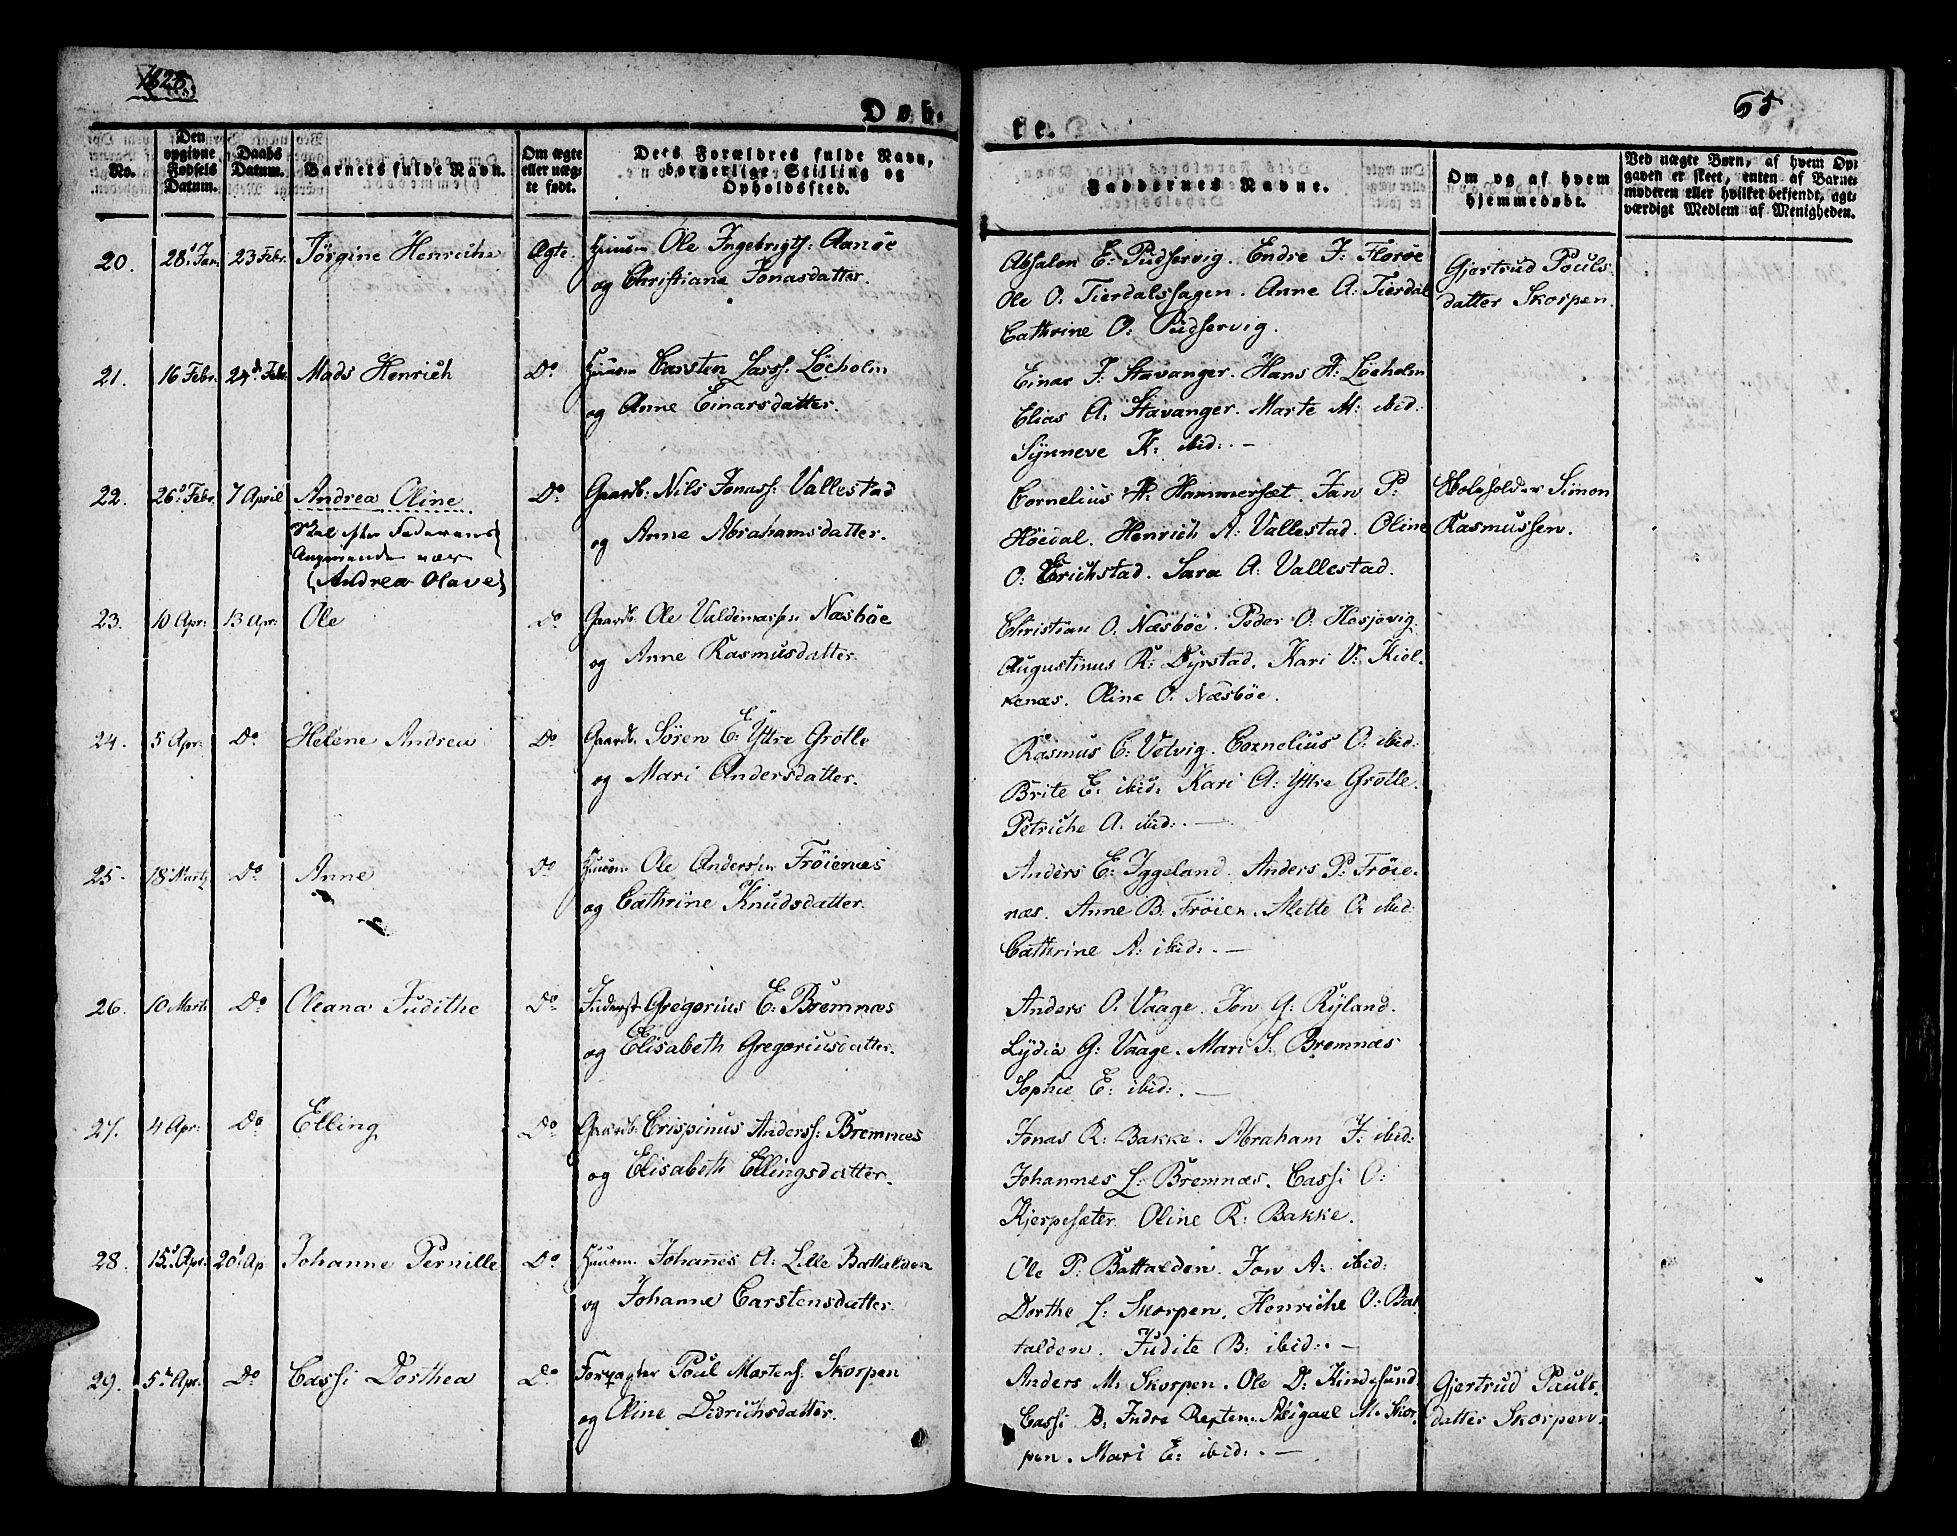 1828.
Døb-
te.
65
No.
Den opgivne Fødsels Datum.
Daabs Datum.
Barnets fulde Navn.
Om ægte eller uægte født.
Dets Forældres fulde Navn, borgerlige Stilling og Opholdsted.
Faddernes Navne.
Om og af hvem hjemmedøbt.
Ved uægte Børn, af hvem Opgaven er skeet, enten af Barnemoderen eller hvilket bekjendt, agtværdigt Medlem af Menigheden.
20. 28d Jan. 23 Febr. Jörgine Henriche Ægte. Huusm Ole Ingebrigts: Aanöe
og Christiane Jonasdatter.
Absalon E: Pudservig. Endre J: Floröe
Ole O. Tierdalshagen. Anne A: Tierdal
Cathrine O: Pudservig.
Gjertrud Pouls-
datter Skorpen.
21. 16 Febr. 24d Febr. Mads Henrich Do Huusm Carsten Lass: Löeholm
og Anne Einarsdatter.
Einar J: Stavanger. Hans A: Löeholm
Elias A: Stavanger. Marte M: ibid:
Synneve K: ibid: —
22. 26d Febr. 7 April Andrea Oline Do Gaardb: Nils Jonass: Vallestad
Skal efter Faderens
Angivende være
(Andrea Olave)
og Anne Abrahamsdatter.
Cornelius A: Hammerset. Jan P:
Höedal. Henrich A: Vallestad. Oline
O: Erichstad. Sara A: Vallestad.
Skoleholder Simon
Rasmussen.
23. 10 Apr: 13 Apr: Ole Do Gaardb. Ole Valdemarsen Næsböe
og Anne Rasmusdatter.
Christian O. Næsböe. Peder O. Hesjevig.
Augustinus R: Dyrstad. Kari V: Kiel-
kenæs. Oline O. Næsböe.
24. 5 Apr: Do Helene Andrea Do Gaardb. Sören E: Yttre Grotle
og Mari Andersdatter.
Rasmus C: Vetvig. Cornelius O. ibid:
Brite E: ibid: Kari A: Yttre Grotle.
Petriche A. ibid: —
25. 18 Martz Do Anne Do Huusm Ole Andersen Fröienæs
og Cathrine Knudsdatter.
Anders E: Iggeland. Anders P: Fröie-
næs. Anne B: Fröien. Mette O: ibid:
Cathrine A: ibid: —
26. 10 Marts Do Oleana Judithe Do Inderst Gregorius E: Bremnæs
og Elisabeth Gregoriusdatter.
Anders O. Vaage. Jon G: Ryland.
Lydia G: Vaage. Mari S. Bremnæs
Sophie E: ibid: —
27. 4 Apr: Do Elling Do Gaardb: Crispinus Anderss: Bremnæs
og Elisabeth Ellingsdatter.
Jonas R: Bakke. Abraham J: ibid:
Johannes L: Bremnæs. Cassi O:
Kjerpesæter. Oline R: Bakke.
28. 15d Apr: 20d Ap Johanne Pernille Do Huusm Johannes A: Lille Batalden
og Johanne Carstensdatter.
Ole P: Battalden. Jon A: ibid:
Dorthe L: Skorpen. Henriche O: Bat-
talden. Judite B: ibid: —
29. 5d Apr. Do Cassi Dorthea Do Forpagter Poul Mortens: Skorpen
og Oline Didrichsdatter.
Anders M: Skorpen. Ole D: Kindesund
Cassi B: Indre Repten. Abigael M: Skor-
pen. Mari E: ibid: —
Gjertrud Pauls-
datter Skorpen.